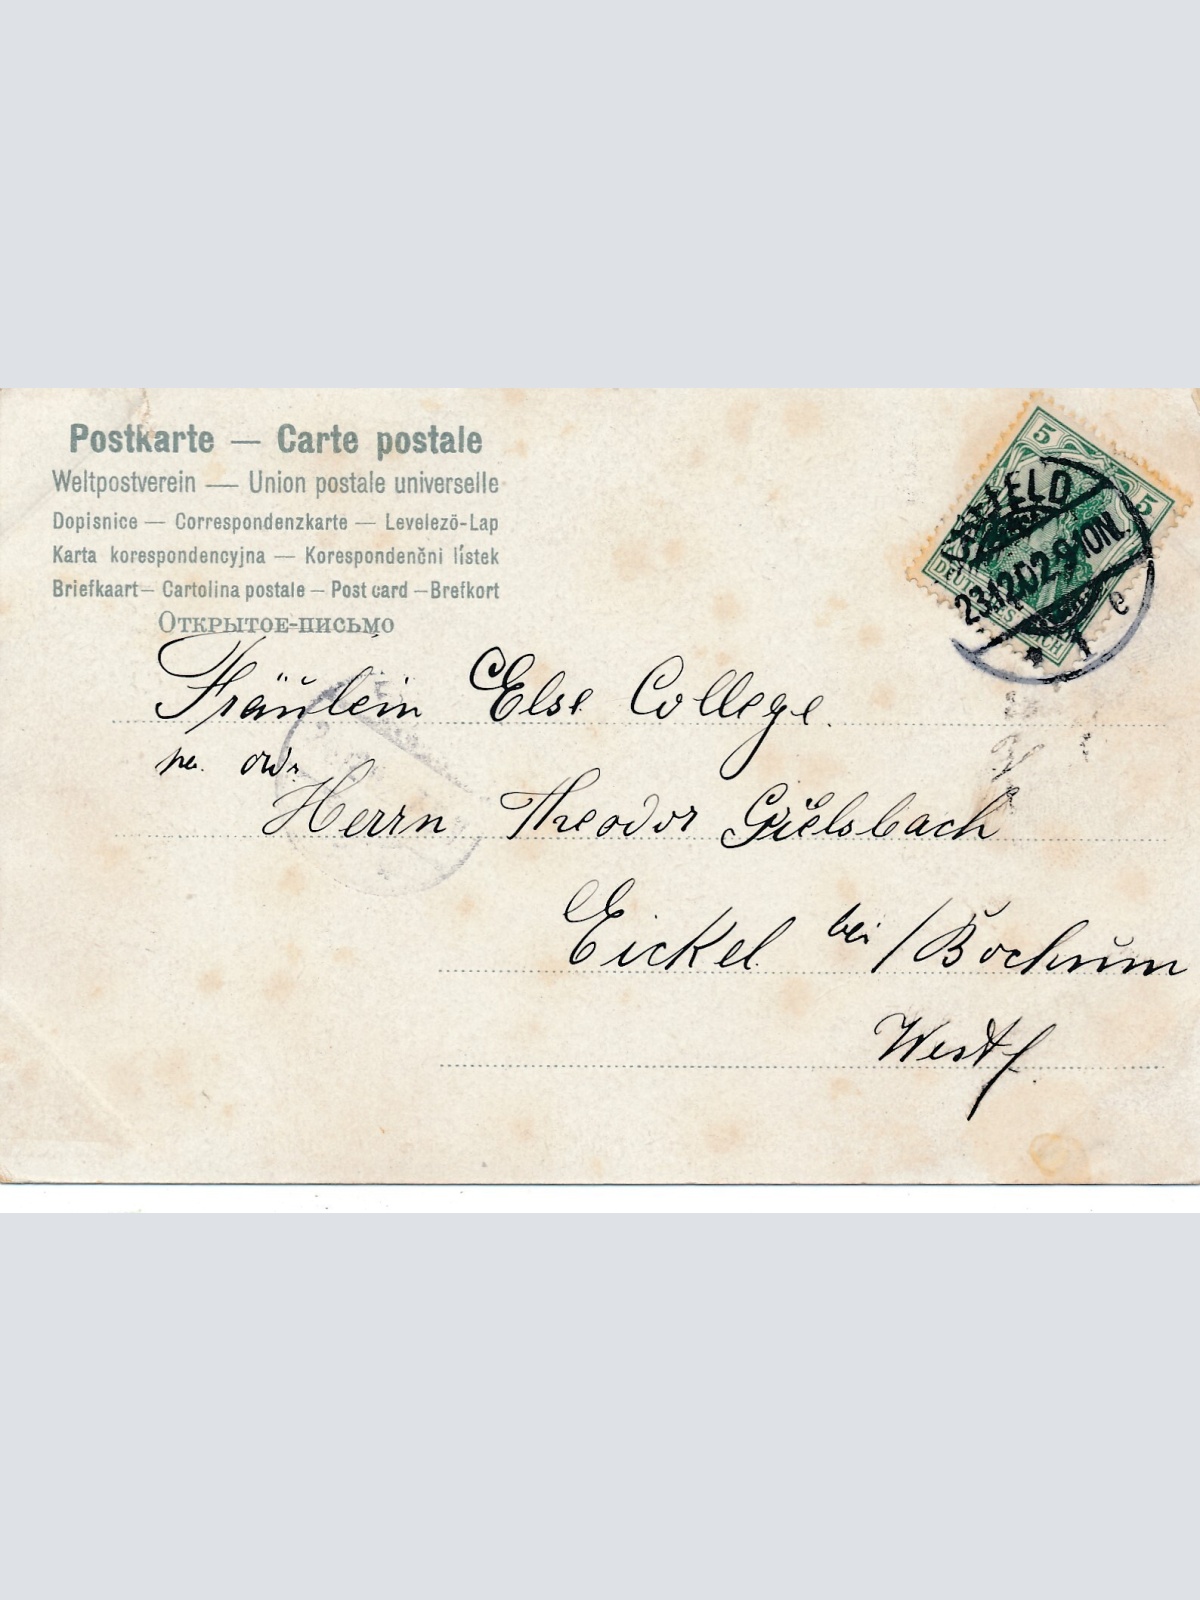 Postkarte — Carte postale
Weltpostverein — Union postale universelle
Dopisnice — Correspondenzkarte — Levelezö-Lap
Karta korespondencyjna — Korespondenčni lístek
Briefkaart — Cartolina postale — Post card — Brefkort
Открытое-письмо
5
5
23.12.02.9-10N.
e
Fräulein Else College.
Herrn Theodor
Eickel bei / Bochum
Westf.